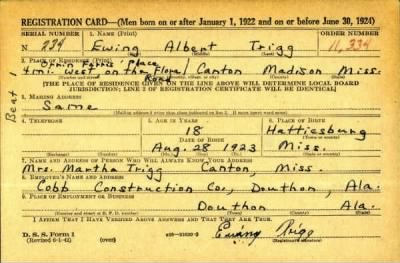 REGISTRATION CARD—(Men born on or after January 1, 1922 and on or before June 30, 1924)
SERIAL NUMBER 1. NAME (Print) ORDER NUMBER
N 234 Ewing Albert Trigg 11,334
Orrin Farris' place
2. PLACE OF RESIDENCE (Print)
4 mi. West, on the Flora/ Canton Madison Miss.
Road
[THE PLACE OF RESIDENCE GIVEN ON THE LINE ABOVE WILL DETERMINE LOCAL BOARD
JURISDICTION; LINE 2 OF REGISTRATION CERTIFICATE WILL BE IDENTICAL]
Beat 1
3. MAILING ADDRESS
Same
4. TELEPHONE 5. AGE IN YEARS 6. PLACE OF BIRTH
18 Hattiesburg
DATE OF BIRTH
Aug. 28 1923 Miss.
7. NAME AND ADDRESS OF PERSON WHO WILL ALWAYS KNOW YOUR ADDRESS
Mrs. Martha Trigg Canton, Miss.
8. EMPLOYER'S NAME AND ADDRESS
Cobb Construction Co., Douthon, Ala.
9. PLACE OF EMPLOYMENT OR BUSINESS
Douthon Ala.
I AFFIRM THAT I HAVE VERIFIED ABOVE ANSWERS AND THAT THEY ARE TRUE.
D. S. S. Form 1
(Revised 6-1-42) (over) Ewing Trigg
(Registrant's signature)